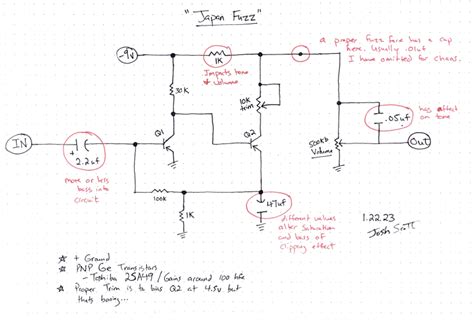 "Japan Fuzz"
a proper Fuzz Face has a cap
here. Usually .01uf
I have omitted for chaos.
-9v
1K
Impacts tone
+ volume
30K
10K
trim
has effect
on tone
.05uf
Q1
Q2
IN
+
2.2uf
500kΩ
Volume
Out
more or less
bass into
circuit
100k
1K
47uf
different values
alter Saturation
and bass of
clipping effect
1.22.23
Josh Scott
+ Ground
PNP Ge Transistors
- Toshiba 2SA49 / Gains around 100 hfe
Proper Trim is to bias Q2 at 4.5v but
thats boring...